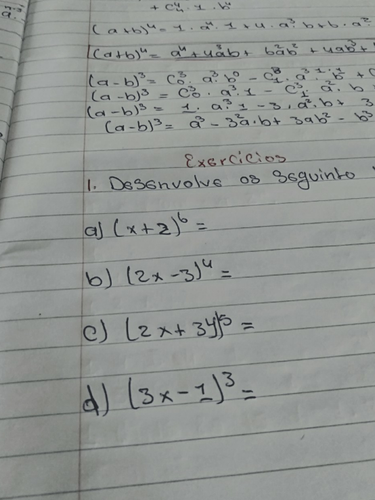 + C⁴₄ . 1 . b⁴
(a+b)⁴ = 1 . a⁴ . 1 + 4 . a³ b + 6 . a²
(a+b)⁴ = a⁴ + 4a³b + 6a²b² + 4ab³ +
(a-b)³ = C³₀ . a³ b⁰ - C³₁ . a³⁻¹ . b¹ + C
(a-b)³ = C³₀ . a³ . 1 - C³₁ . a² . b
(a-b)³ = 1 . a³ . 1 - 3 . a² . b + 3
(a-b)³ = a³ - 3a² . b + 3ab² - b³
Exercícios
1. Desenvolve os seguinto
a) (x+2)⁶ =
b) (2x-3)⁴ =
c) (2x+3y)⁵ =
d) (3x-1)³ =